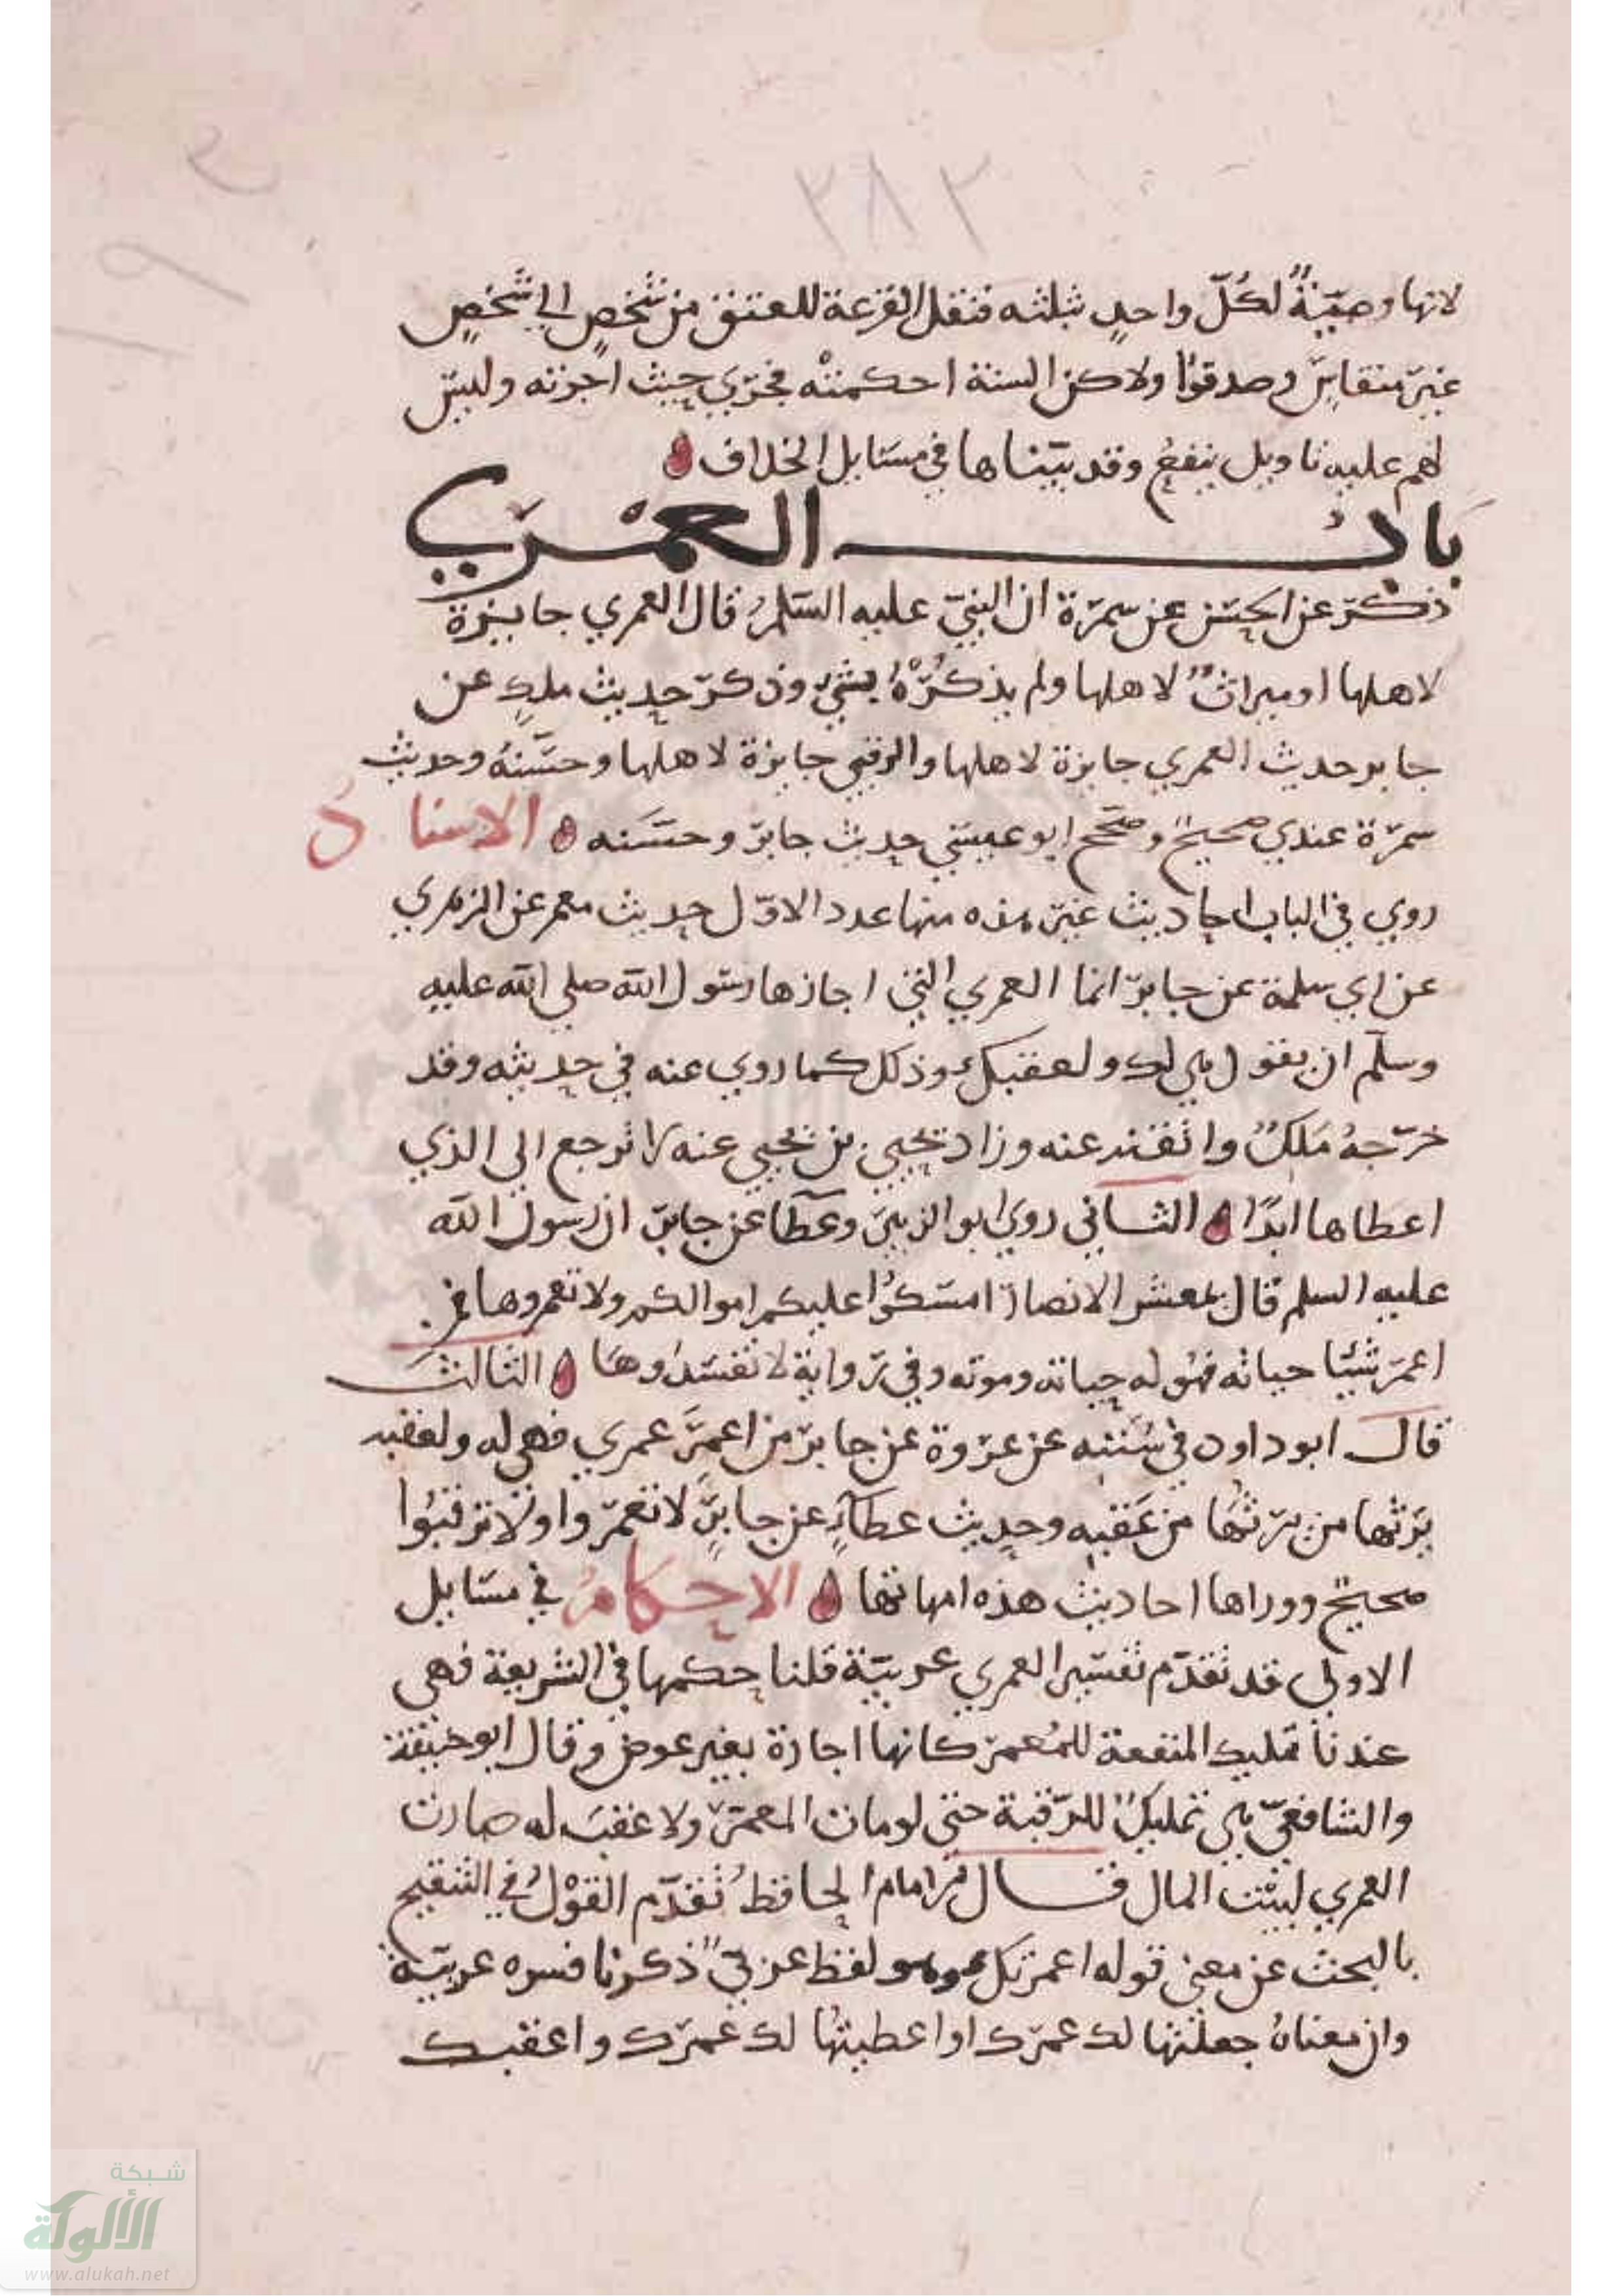 ٢٨٢
لانها وصيّةٌ لكلّ واحدٍ بثلثه فنقل القرعة للعتق من شخصٍ الى شخصٍ
غير متقايس وصدقوا ولاكن السنة احكمته فجري حيث اجرته وليس
لهم عليه تاويل ينفع وقد بيّناها في مسايل الخلاف
باب العمري
ذكر عن الحسن عن سمرة ان النبيّ عليه السلم قال العمري جايزة
لاهلها او ميراثٌ لاهلها ولم يذكره بشيء وذكر حديث ملك عن
جابر حديث العمري جايزة لاهلها والرقبي جايزة لاهلها وحسّنه وحديث
سمرة عندي صحيح وصحح ابو عيسي حديث جابر وحسّنه الاسناد
روي في الباب احاديث غير هذه منها عدد الاوّل حديث معمر عن الزهري
عن ابي سلمة عن جابر انما العمري التي اجازها رسول الله صلي الله عليه
وسلّم ان يقول هي لك ولعقبك وذلك كما روي عنه في حديثه وقد
خرّجه ملك وانفند عنه وزاد يحيي بن يحيي عنه لا ترجع الي الذي
اعطاها ابدًا الثاني روي ابو الزبير وعطا عن جابر ان رسول الله
عليه السلم قال يمعشر الانصار امسكوا عليكم اموالكم ولا تعمروها فمن
اعمر شيئا حياته فهو له حياته وموته وفي رواية لا تفسدوها الثالث
قال ابو داود في سننه عن عروة عن جابر من اعمر عمري فهي له ولعقبه
يرثها من يرثها من عقبه وحديث عطاءٍ عن جابرٍ لا تعمروا ولا ترقبوا
صحيح ووراها احاديث هذه امهاتها الاحكام في مسايل
الاولي قد تقدّم تفسير العمري عربيّة قلنا حكمها في الشريعة فهي
عندنا تمليك المنفعة للمُعمر كانها اجارة بغير عوض وقال ابو حنيفة
والشافعيّ هي تمليكٌ للرّقبة حتي لو مات المعمر ولا عقب له صارت
العمري لبيت المال قال الامام الحافظ تقدّم القوْل في التنقيح
بالبحث عن معني قوله اعمرتك وهو لفظ عربيّ ذكرنا فسره عربيّة
وان معناهُ جعلتها لك عمرك او اعطيتها لك عمرك واعقبك
شبكة
الألوكة
www.alukah.net